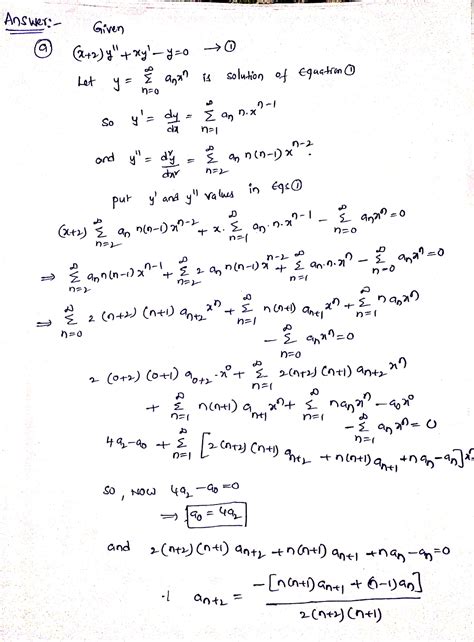 Answer:- Given
(a) (x+2)y'' + xy' - y = 0 → ①
Let y = ∞Σn=0 aₙxⁿ is solution of Equation ①
So y' = dy/dx = ∞Σn=1 aₙ n.xⁿ⁻¹
and y'' = d²y/dx² = ∞Σn=2 aₙ n(n-1) xⁿ⁻².
put y' and y'' values in Eqs ①
(x+2) ∞Σn=2 aₙ n(n-1) xⁿ⁻² + x. ∞Σn=1 aₙ.n.xⁿ⁻¹ - ∞Σn=0 aₙxⁿ = 0
⇒ ∞Σn=2 aₙ n(n-1) xⁿ⁻¹ + ∞Σn=2 2 aₙ n(n-1) xⁿ⁻² + ∞Σn=1 aₙ.n.xⁿ - ∞Σn=0 aₙxⁿ = 0
⇒ ∞Σn=0 2 (n+2) (n+1) aₙ₊₂ xⁿ + ∞Σn=1 n(n+1) aₙ₊₁ xⁿ + ∞Σn=1 n aₙxⁿ
- ∞Σn=0 aₙxⁿ = 0
2 (0+2) (0+1) a₀₊₂ . x⁰ + ∞Σn=1 2(n+2) (n+1) aₙ₊₂ xⁿ
+ ∞Σn=1 n(n+1) aₙ₊₁ xⁿ + ∞Σn=1 naₙxⁿ - a₀x⁰
- ∞Σn=1 aₙxⁿ = 0
4a₂ - a₀ + ∞Σn=1 [2(n+2) (n+1) aₙ₊₂ + n(n+1) aₙ₊₁ + n aₙ - aₙ] x
So, Now 4a₂ - a₀ = 0
⇒ a₀ = 4a₂
and 2(n+2) (n+1) aₙ₊₂ + n(n+1) aₙ₊₁ + n aₙ - aₙ = 0
aₙ₊₂ = -[n(n+1) aₙ₊₁ + (n-1) aₙ] / 2(n+2) (n+1)